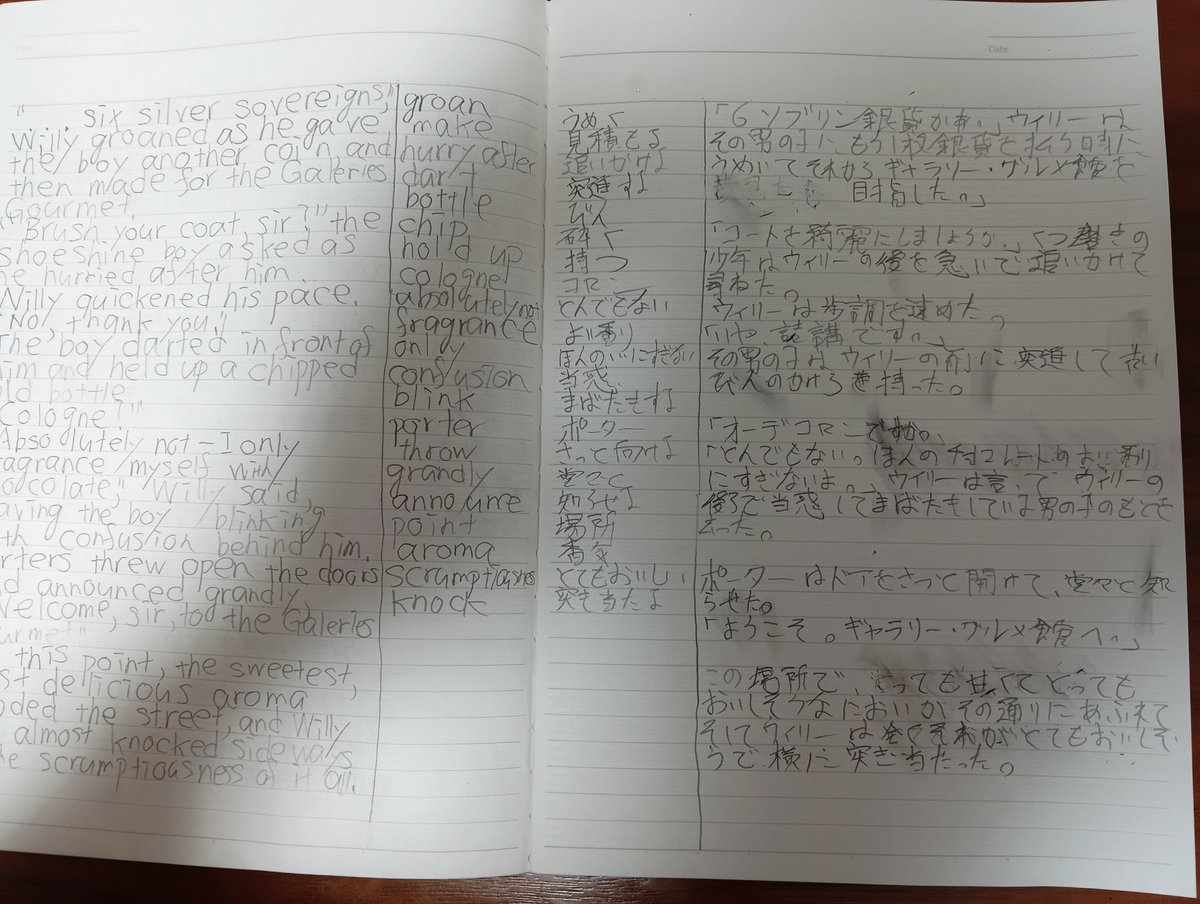 " six silver sovereigns,"
Willy groaned as he gave
the boy another coin and
then made for the Galeries
Gourmet.
Brush your coat, sir?" the
shoeshine boy asked as
he hurried after him.
Willy quickened his pace.
"No, thank you."
The boy darted in front of
him and held up a chipped
old bottle
Cologne?"
Absolutely not - I only
fragrance myself with
chocolate," Willy said,
leaving the boy blinking
with confusion behind him.
porters threw open the doors
and announced grandly,
Welcome, sir, too the Galeries
Gourmet"
this point, the sweetest,
most delicious aroma
flooded the street, and Willy
almost knocked sideways
the scrumptiousness of it all.
groan
make
hurry after
dart
bottle
chip
hold up
cologne
absolutely not
fragrance
only
confusion
blink
porter
throw
grandly
announce
point
aroma
scrumptiousness
knock
うめく
見積もる
追いかける
突進する
びん
砕く
持つ
コロン
とんでもない
よい香り
ほんの〜にすぎない
当惑
まばたきする
ポーター
さっと向ける
堂々と
知らせる
場所
香気
とてもおいしい
突き当たる
Date
「6 ソブリン銀貨かぁ。」ウィリーは
その男の子にもう1枚銀貨を払う時に
うめいてそれからギャラリー・グルメ館を
目指した。」
「コートを綺麗にしましょうか。」くつ磨きの
少年はウィリーの後を急いで追いかけて
尋ねた。
ウィリーは歩調を速めた。
「いや、結構です。」
その男の子はウィリーの前に突進して古い
びんのかけらを持った。
「オーデコロンですか。」
「とんでもない。ほんのチョコレートのよい香り
にすぎないよ。」ウィリーは言って ウィリーの
後ろで当惑してまばたきしている男の子のもとを
去った。
ポーターはドアをさっと開けて、堂々と知
らせた。
「ようこそ。ギャラリー・グルメ館へ。」
この場所で、とっても甘くてとっても
おいしそうなにおいがその通りにあふれて
そしてウィリーは全てそれがとてもおいしそ
うで横に突き当たった。